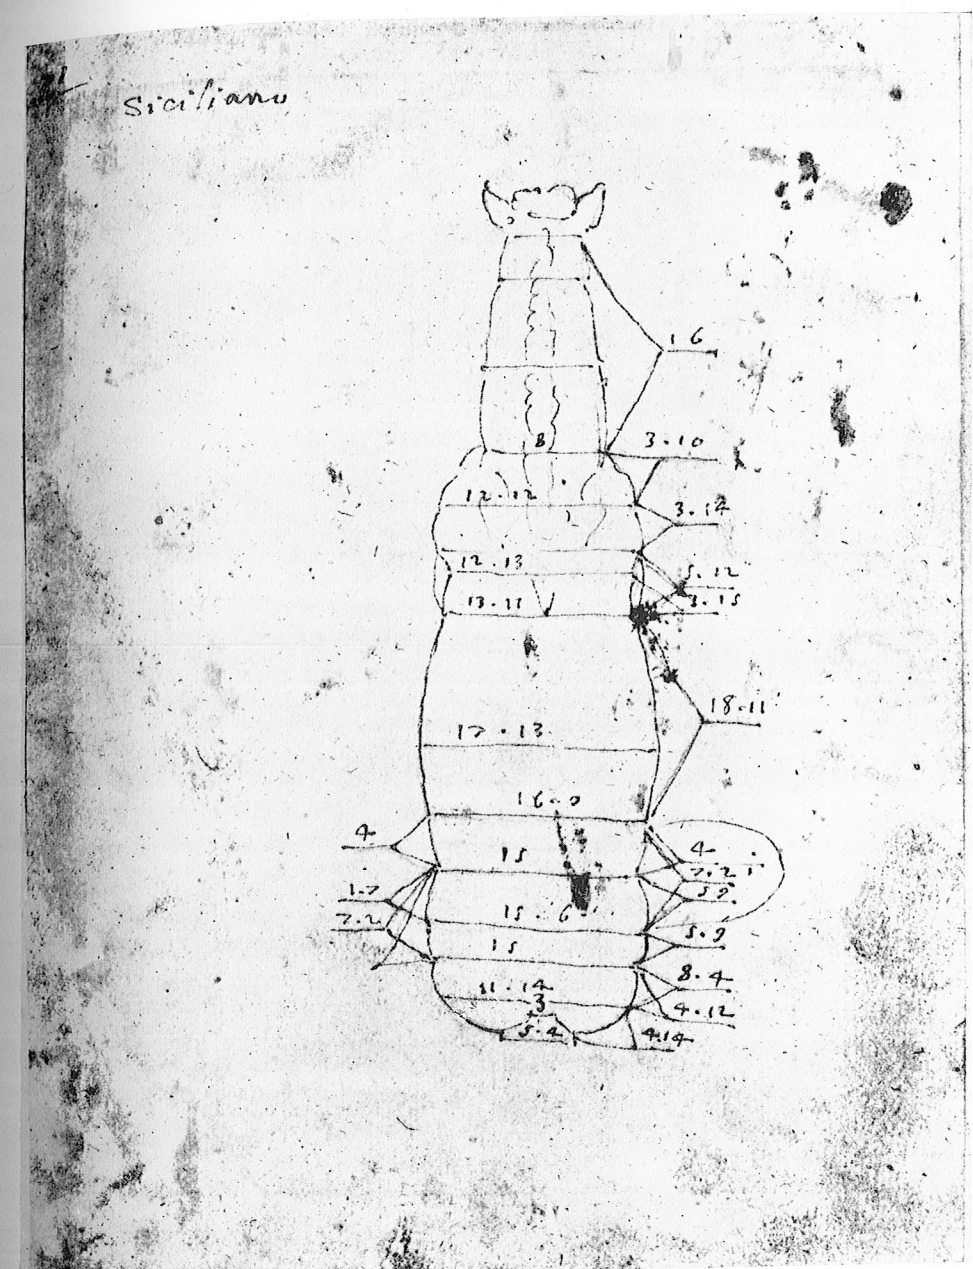 Siciliano
16
8
3.10
12.12
3.14
12.13
5.12
3.15
13.11
18.11
17.13
16.9
4
15
4
7.2
1.7
5.9
7.2
15.6
5.9
15
8.4
11.14
3
4.12
5.4
4.14